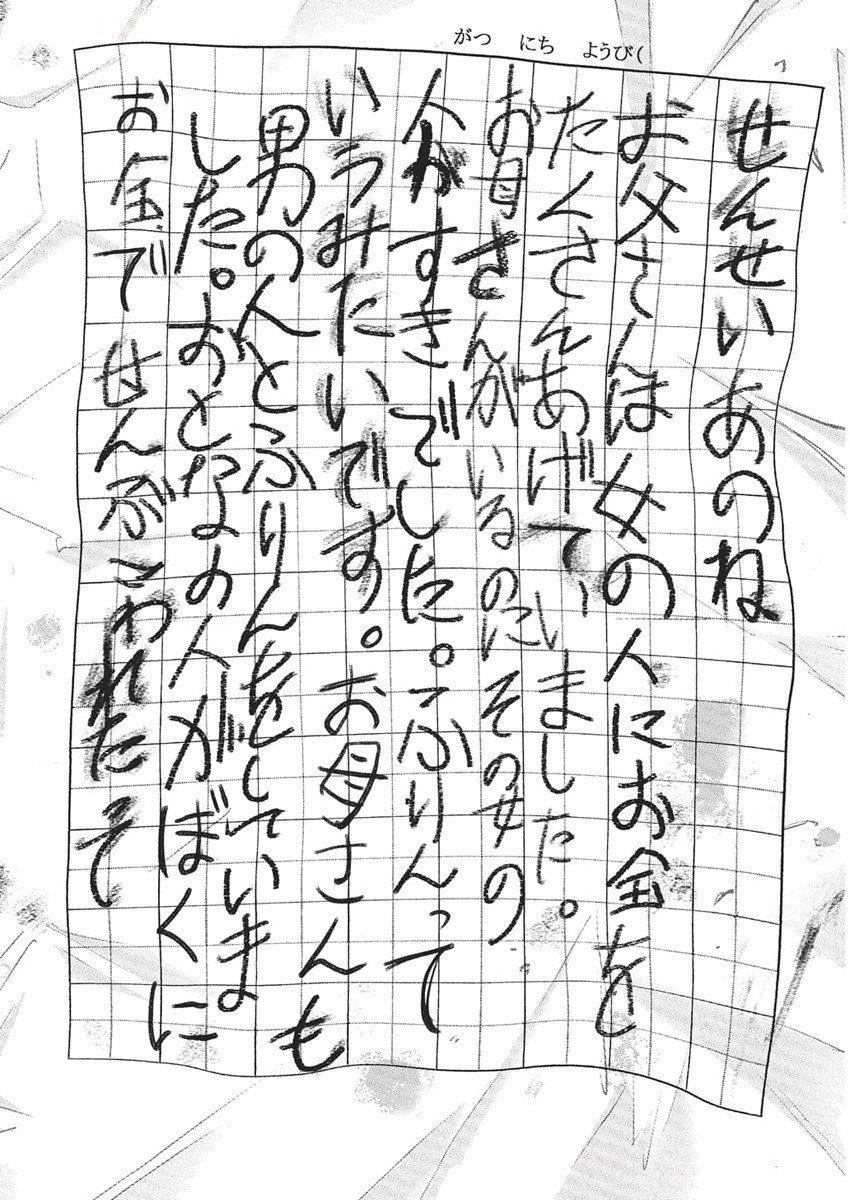 がつ　にち　ようび（
せんせいあのね
お父さんは女の人にお金を
たくさんあげていました。
お母さんがいるのにその女の
人がすきでした。ふりんって
いうみたいです。お母さんも
男の人とふりんをしていま
した。おとなの人がぼくに
お金でせんぶこわれたそ